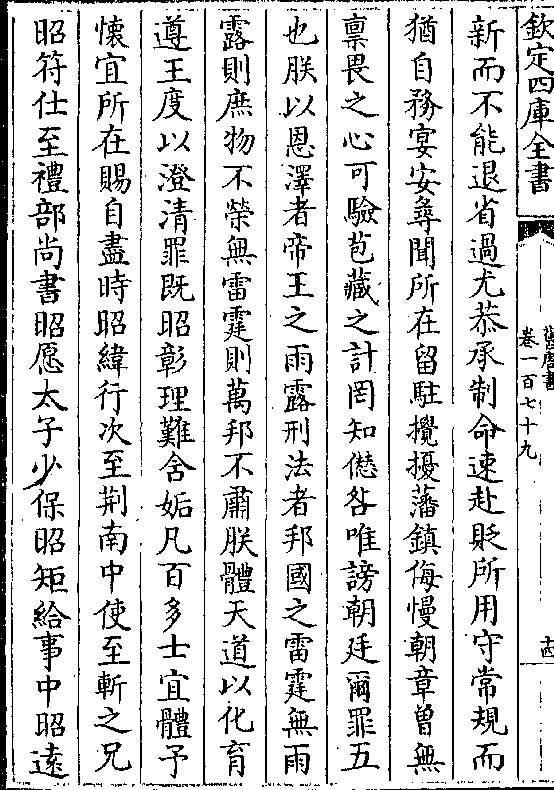 欽定四庫全書
舊唐書
卷一百七十九
十四
新而不能退省過尤恭承制命速赴貶所用守常規而
猶自務宴安尋聞所在留駐攪擾藩鎮侮慢朝章曽無
禀畏之心可驗苞藏之計罔知僽咎唯謗朝廷爾罪五
也朕以恩澤者帝王之雨露刑法者邦國之雷霆無雨
露則庶物不榮無雷霆則萬邦不肅朕體天道以化育
遵王度以澄清罪既昭彰理難舍垢凡百多士宜體予
懐宜所在賜自盡時昭緯行次至荆南中使至斬之兄
昭符仕至禮部尚書昭愿太子少保昭矩給事中昭遠